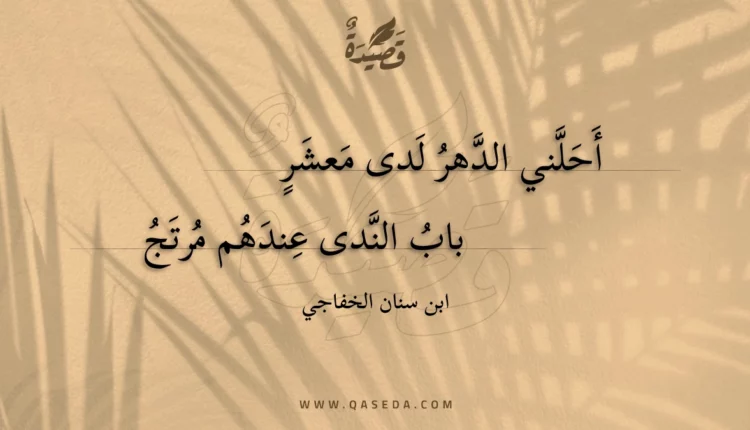 قَصِيْدَةٌ
أَحَلَّني الدَّهرُ لَدى مَعشَرٍ
بابُ النَّدى عِندَهُم مُرتَجُ
ابن سنان الخفاجي
WWW.QASEDA.COM